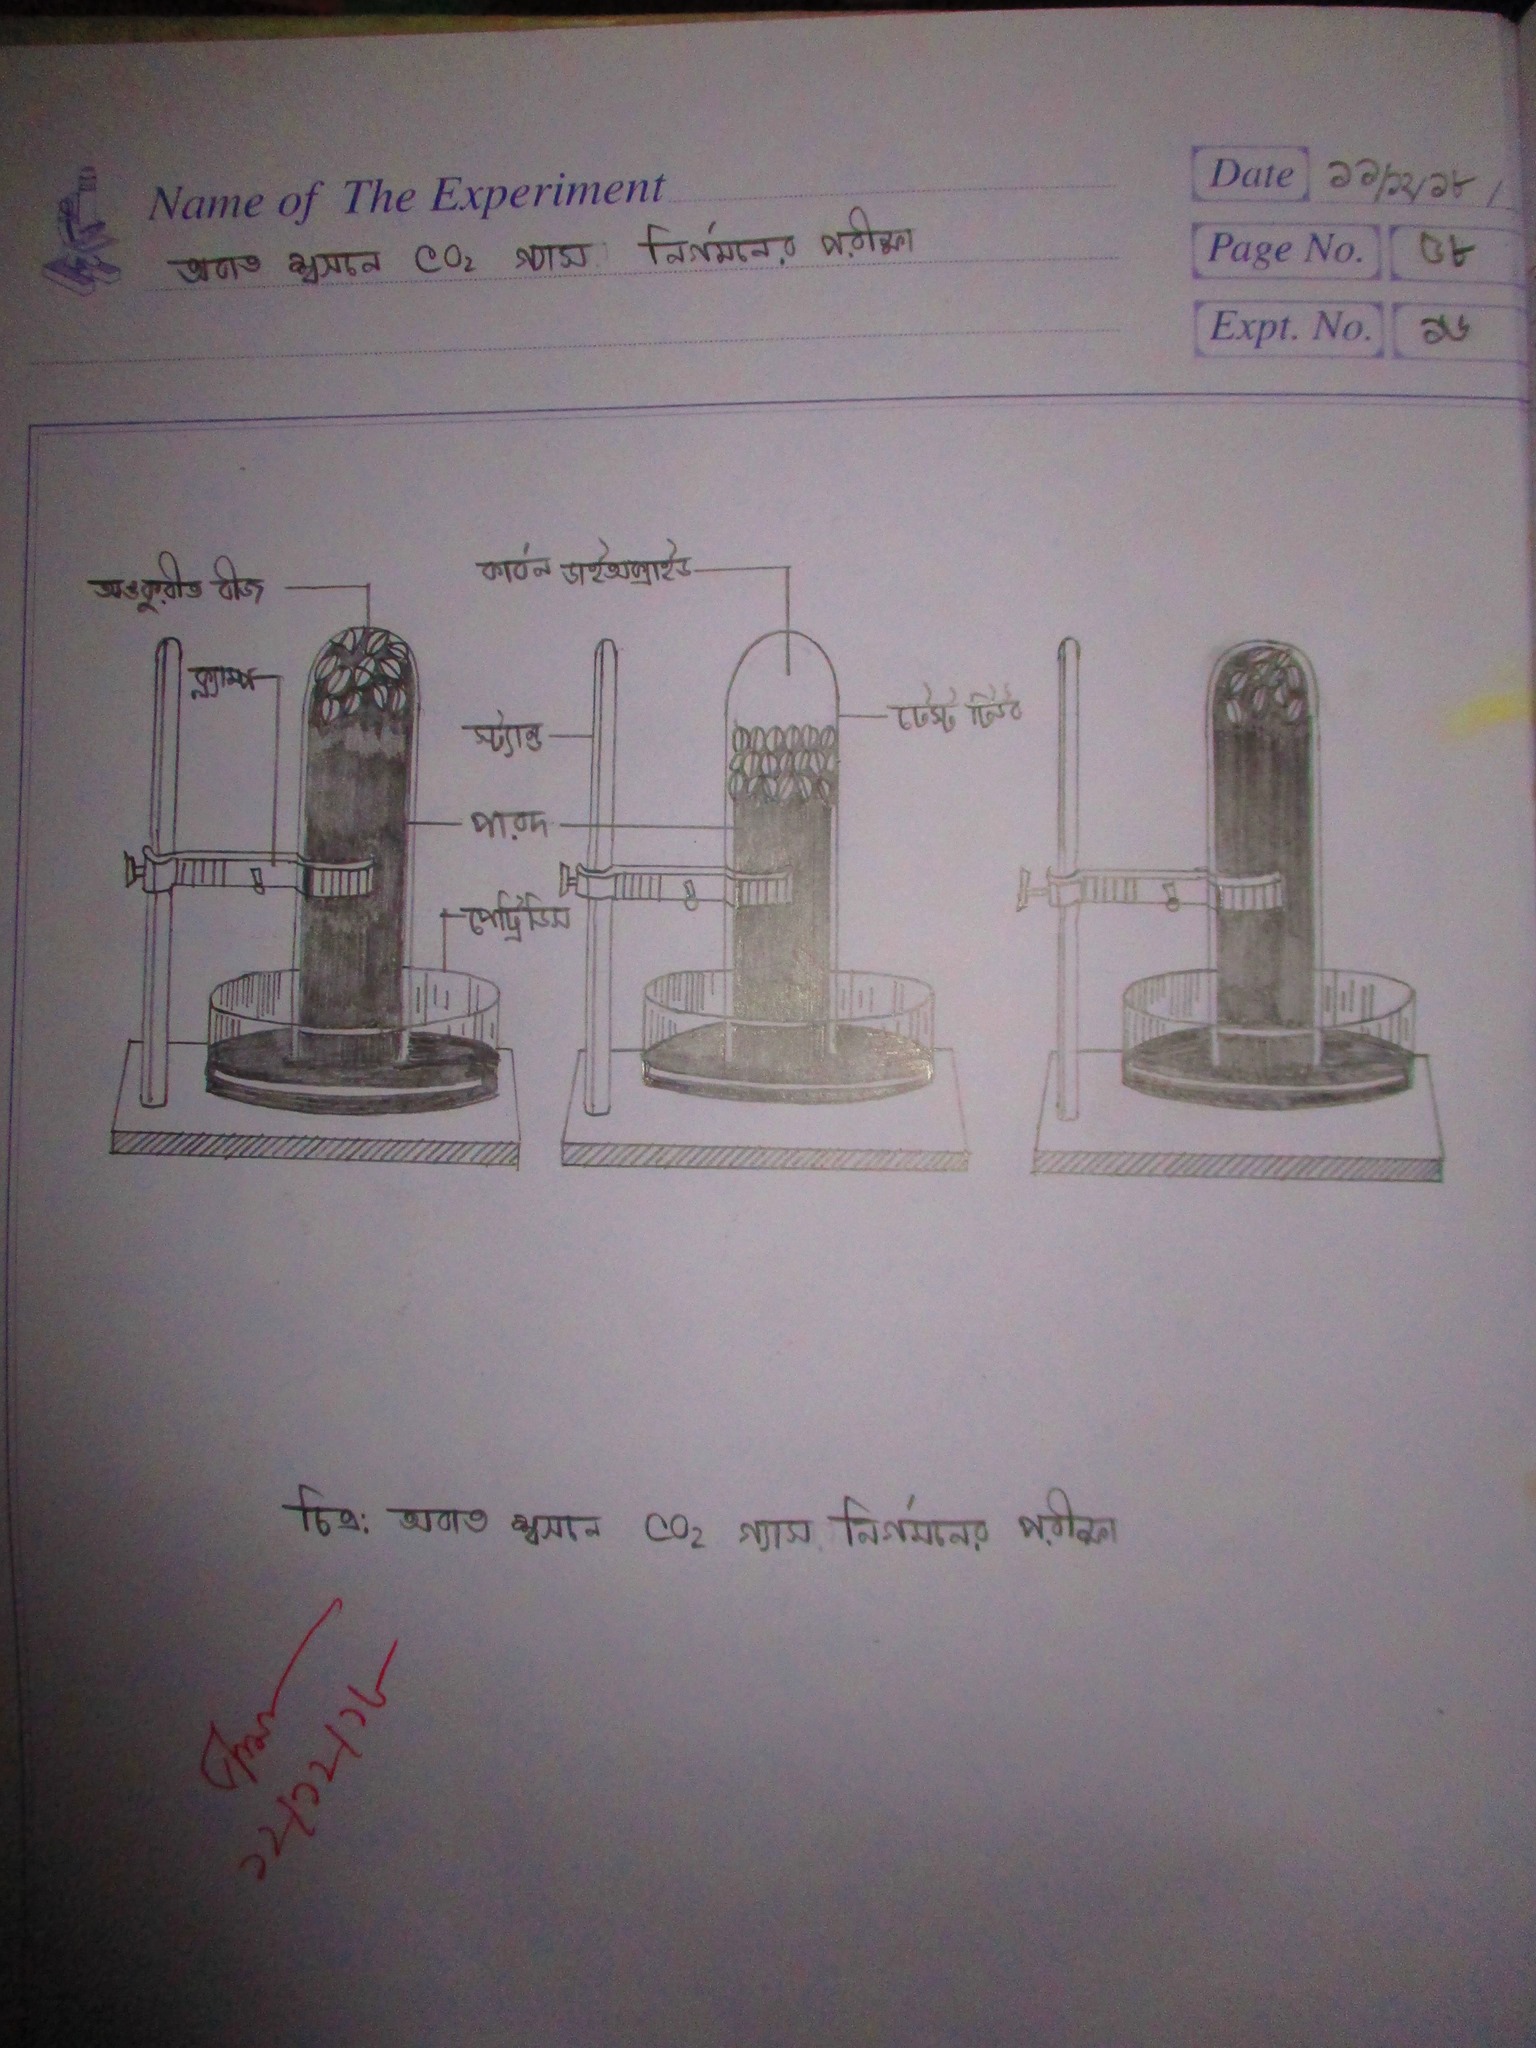 Name of The Experiment
অবাত শ্বসনে CO₂ গ্যাস নির্গমনের পরীক্ষা
Date ১১/১২/১৮
Page No. ৩৮
Expt. No. ১৬
অঙকুরীত বীজ
কার্বন ডাইঅক্সাইড
ক্ল্যাম্প
স্ট্যান্ড
টেস্ট টিউব
পারদ
পেট্রিডিস
চিত্র: অবাত শ্বসনে CO₂ গ্যাস নির্গমনের পরীক্ষা
১২/১২/১৮